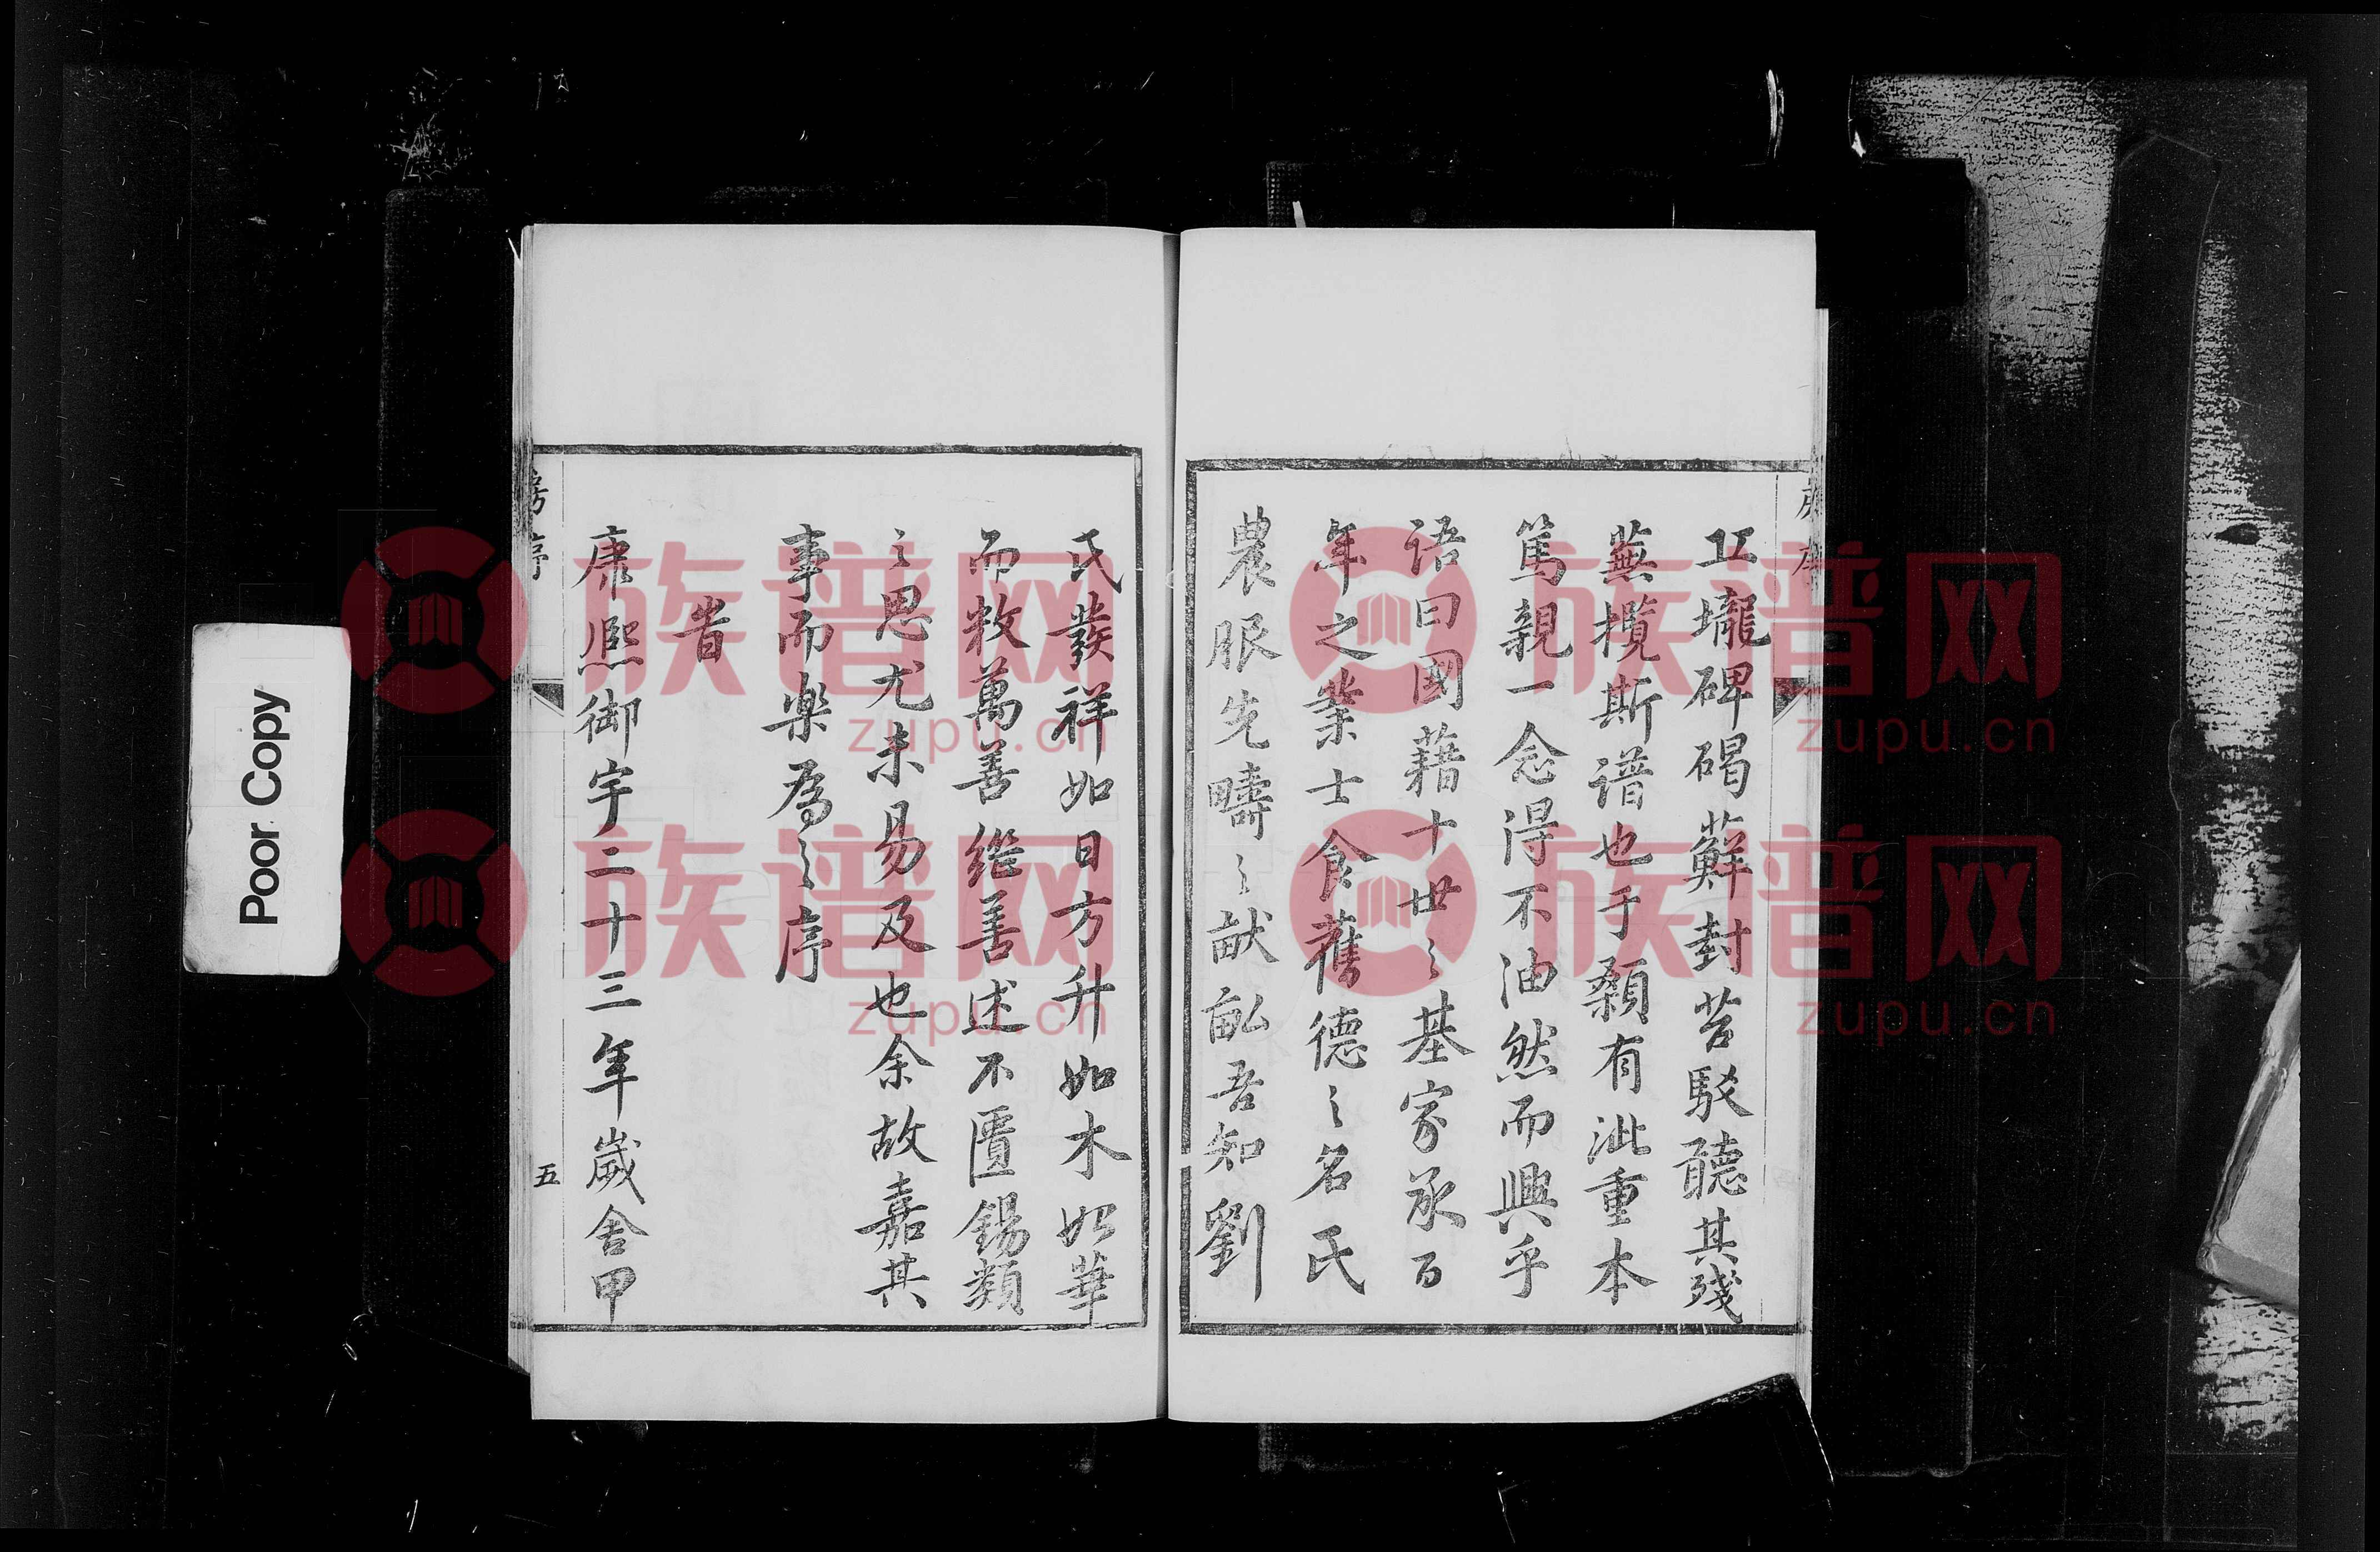 丘壠碑碣蘚封苔駁聽其殘
蕪攬斯谱也于纇有泚重本
篤親一念得不油然而興乎
语曰國藉十世之基家承百
年之業士食舊德之名氏
農服先疇之畎畝吾知劉
氏發祥如日方升如木始華
而敉萬善继善述不匱錫類
之思尤未易及也余故嘉其
事而樂爲之序
旹
康熙御宇二十三年歲舍甲
五
Poor Copy
族普网
zupu.cn
族普网
zupu.cn
族普网
zupu.cn
族普网
zupu.cn